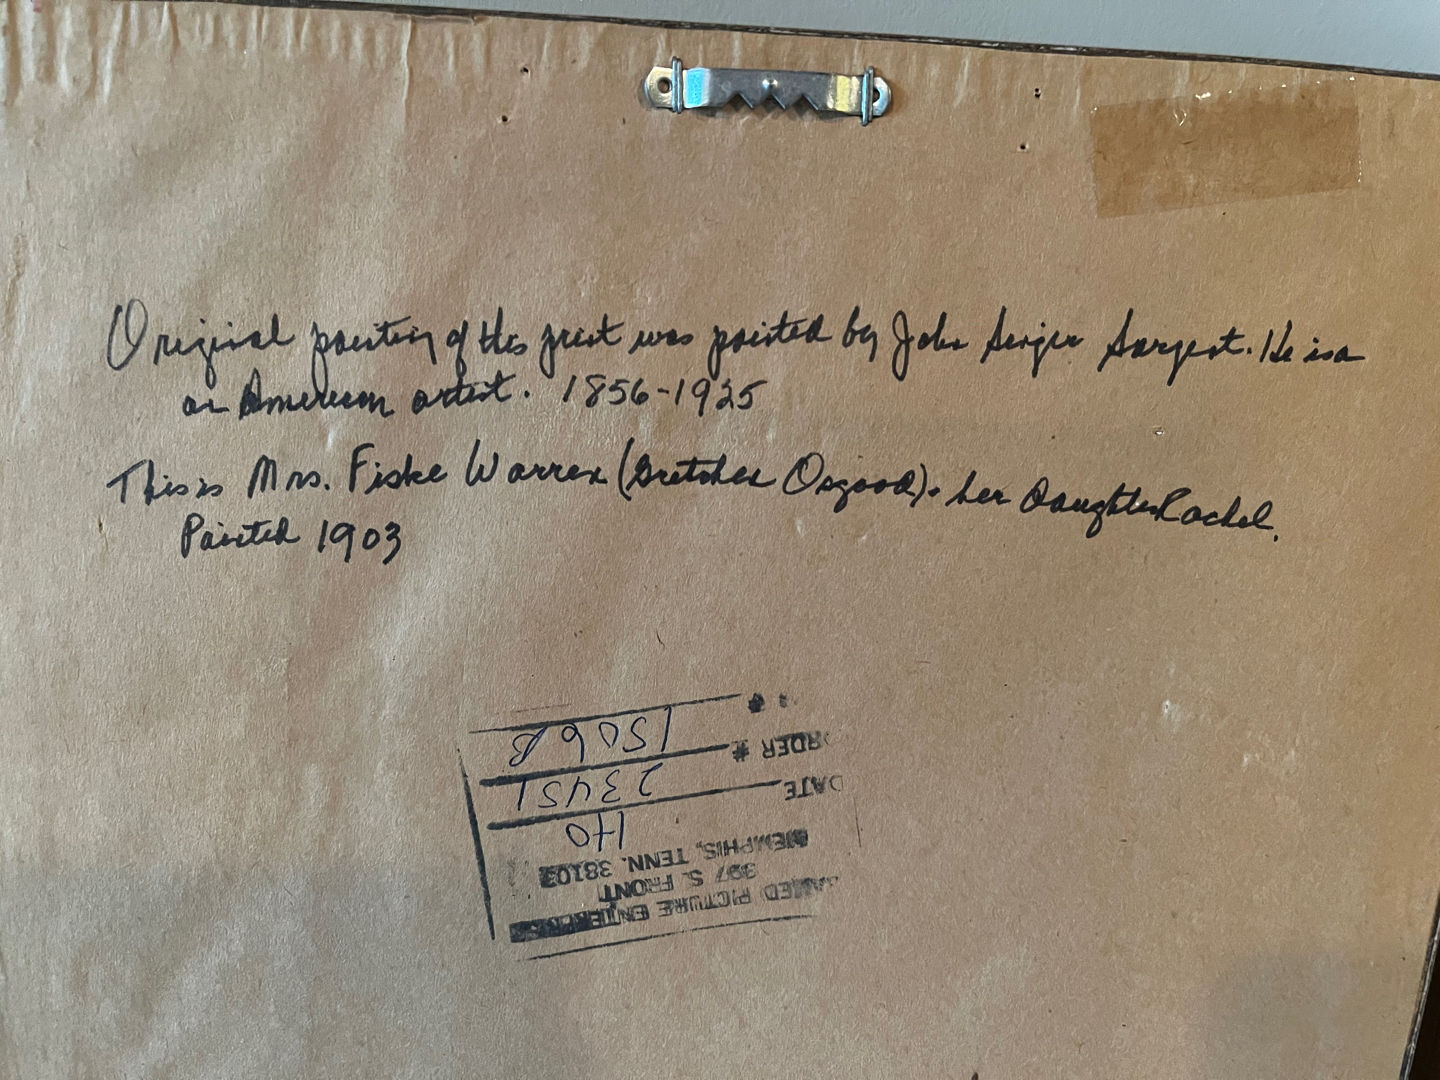 Original painting of this print was painted by John Singer Sargent. He is a
an American artist. 1856-1925
This is Mrs. Fiske Warren (Gretchen Osgood) + her daughter Rachel.
Painted 1903
PICTURE
397 S. FRONT
MEMPHIS, TENN. 38103
HO
DATE 23451
ORDER # 1506B
#